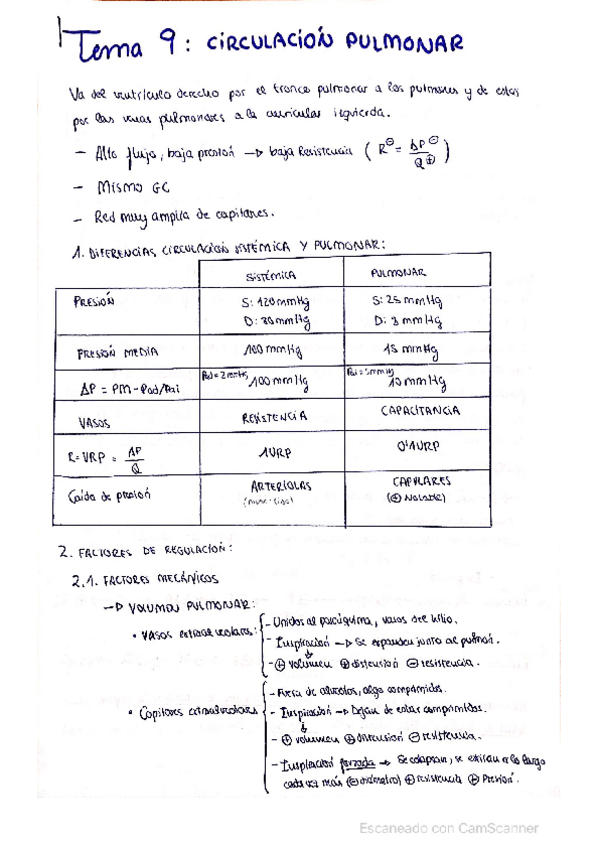 Tema 9: CIRCULACIÓN PULMONAR
Va del ventrículo derecho por el tronco pulmonar a los pulmones y de estos
por las venas pulmonares a la auricular izquierda.
- Alto flujo, baja presión → baja Resistencia ( R⊖ = ΔP⊖ / Q⊕ )
- Mismo GC
- Red muy amplia de capilares.
1. DIFERENCIAS CIRCULACIÓN SISTÉMICA Y PULMONAR:
SISTÉMICA PULMONAR
PRESIÓN S: 120 mmHg S: 25 mmHg
D: 80 mmHg D: 8 mmHg
PRESIÓN MEDIA 100 mmHg 15 mmHg
ΔP = PM - Pad/Pai Pad = 2 mmHg 100 mmHg Pai = 5 mmHg 10 mmHg
VASOS RESISTENCIA CAPACITANCIA
R = URP = ΔP / Q 1 URP 0'1 URP
Caída de presión ARTERIOLAS CAPILARES
(⊕ Notable)
2. FACTORES DE REGULACIÓN:
2.1. FACTORES MECÁNICOS
→ VOLUMEN PULMONAR:
• Vasos extraalveolares: - Unidos al parénquima, vasos del hilio.
- Inspiración → Se expanden junto al pulmón.
↓
- ⊕ volumen ⊕ distensión ⊖ resistencia.
• Capilares extraalveolares - Fuera de alveolos, algo comprimidos.
- Inspiración → Dejan de estar comprimidos.
↓
- ⊕ volumen ⊕ distensión ⊖ resistencia.
- Inspiración forzada → Se colapsan, se estiran a lo largo
cada vez más (⊖ diámetro) ⊕ resistencia ⊕ Presión.
Escaneado con CamScanner